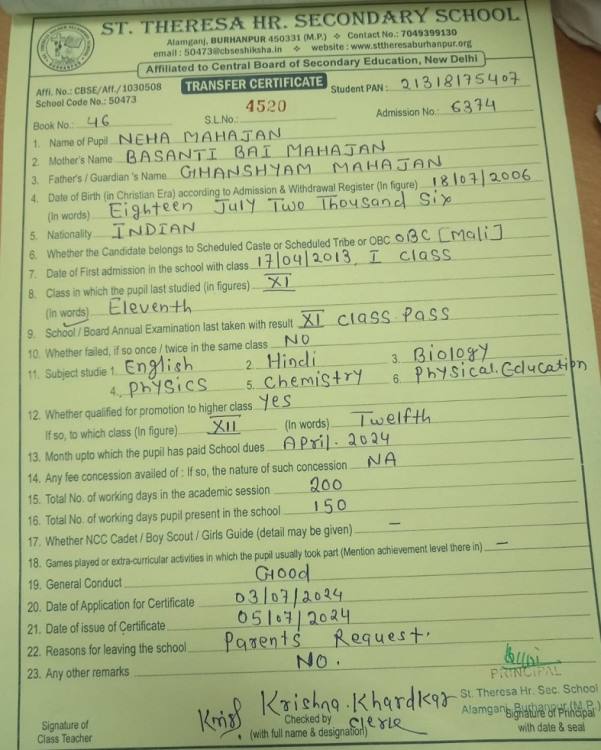 ST. THERESA HR. SECONDARY SCHOOL
Alamganj, BURHANPUR 450331 (M.P.) ❖ Contact No.: 7049399130
email : 50473@cbseshiksha.in ❖ website : www.sttheresaburhanpur.org
Affiliated to Central Board of Secondary Education, New Delhi
Affi. No.: CBSE/Aff./1030508 TRANSFER CERTIFICATE Student PAN: 21318175407
School Code No.: 50473
Book No.: 46 S.L.No.: 4520 Admission No.: 6374
1. Name of Pupil NEHA MAHAJAN
2. Mother's Name BASANTI BAI MAHAJAN
3. Father's / Guardian 's Name GHANSHYAM MAHAJAN
4. Date of Birth (in Christian Era) according to Admission & Withdrawal Register (In figure) 18/07/2006
(In words) Eighteen July Two Thousand Six
5. Nationality INDIAN
6. Whether the Candidate belongs to Scheduled Caste or Scheduled Tribe or OBC OBC [Mali]
7. Date of First admission in the school with class 17/04/2013, I class
8. Class in which the pupil last studied (in figures) XI
(In words) Eleventh
9. School / Board Annual Examination last taken with result XI class Pass
10. Whether failed, if so once / twice in the same class NO
11. Subject studie 1. English 2. Hindi 3. Biology
4. Physics 5. Chemistry 6. Physical Education
12. Whether qualified for promotion to higher class Yes
If so, to which class (In figure) XII (In words) Twelfth
13. Month upto which the pupil has paid School dues April. 2024
14. Any fee concession availed of : If so, the nature of such concession NA
15. Total No. of working days in the academic session 200
16. Total No. of working days pupil present in the school 150
17. Whether NCC Cadet / Boy Scout / Girls Guide (detail may be given) –
18. Games played or extra-curricular activities in which the pupil usually took part (Mention achievement level there in) –
19. General Conduct Good
20. Date of Application for Certificate 03/07/2024
21. Date of issue of Certificate 05/07/2024
22. Reasons for leaving the school Parents Request.
23. Any other remarks NO.
PRINCIPAL
St. Theresa Hr. Sec. School
Alamganj, Burhanpur (M.P.)
Krishna. Khardkar
Clerk
Signature of
Class Teacher
Checked by
(with full name & designation)
Signature of Principal
with date & seal